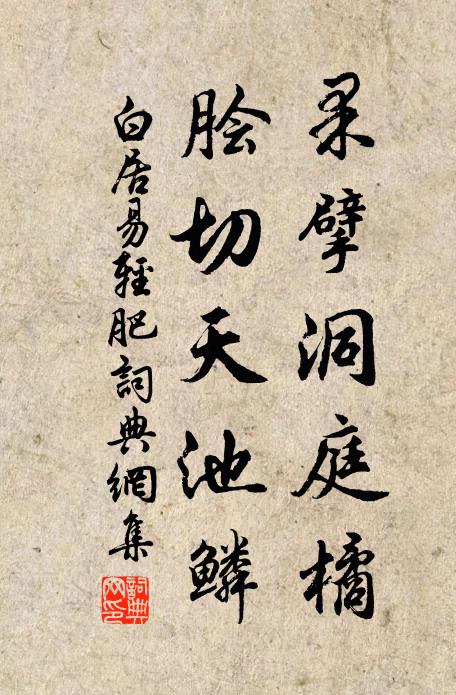 果擘洞庭橘
脍切天池鳞
白居易輕肥詞典網集
詞典
网印